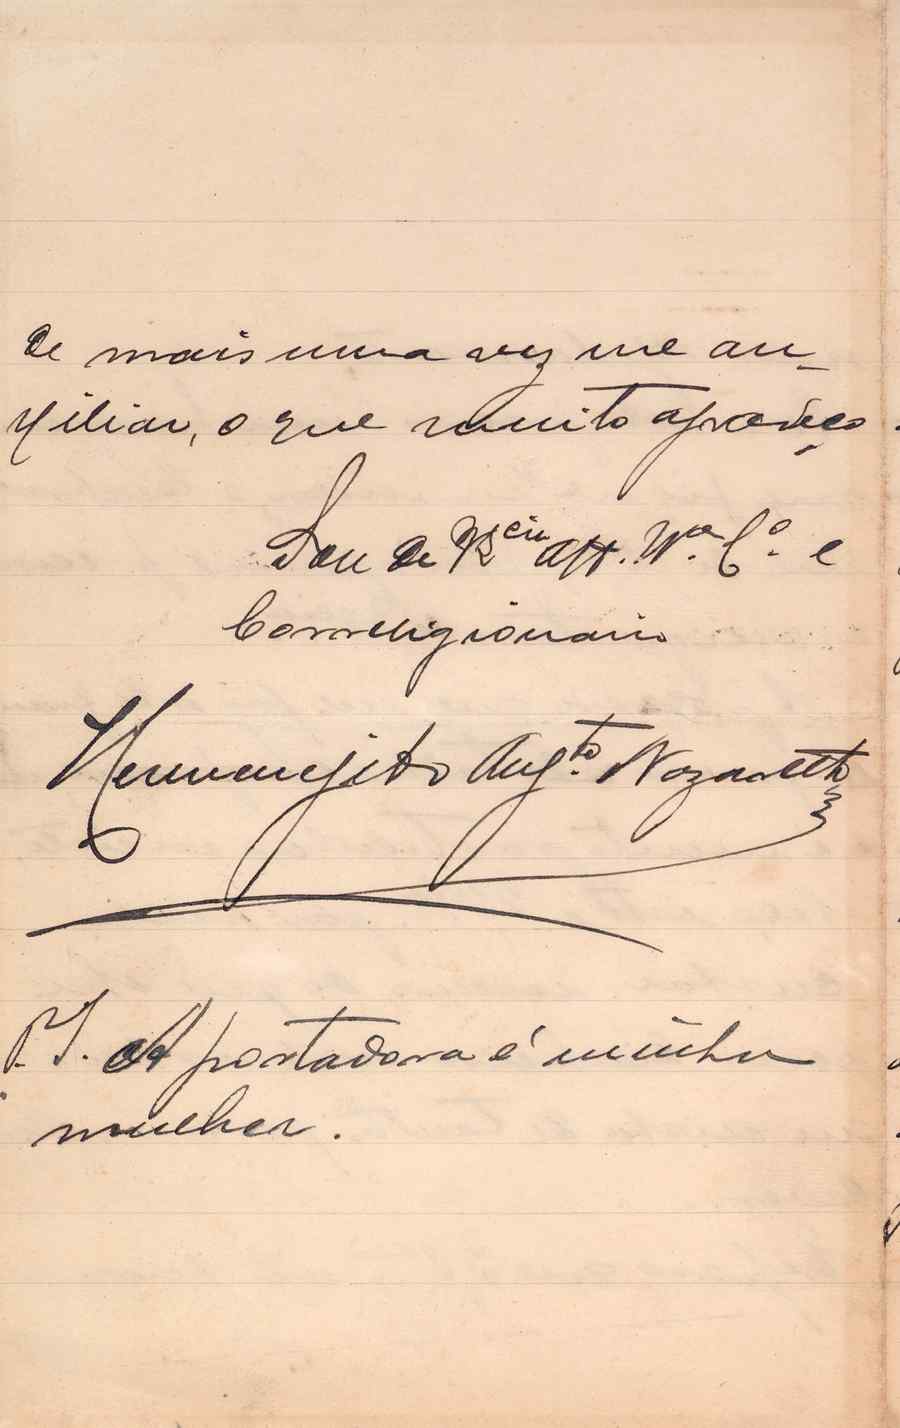 de mais uma vez me au-
xiliar, o que muito agradeço.
Sou de V. Ex.cia Att. V.or C.o e
Correligionario
Hermenegildo Aug.to Nazareth
P. S. A portadora é minha
mulher.